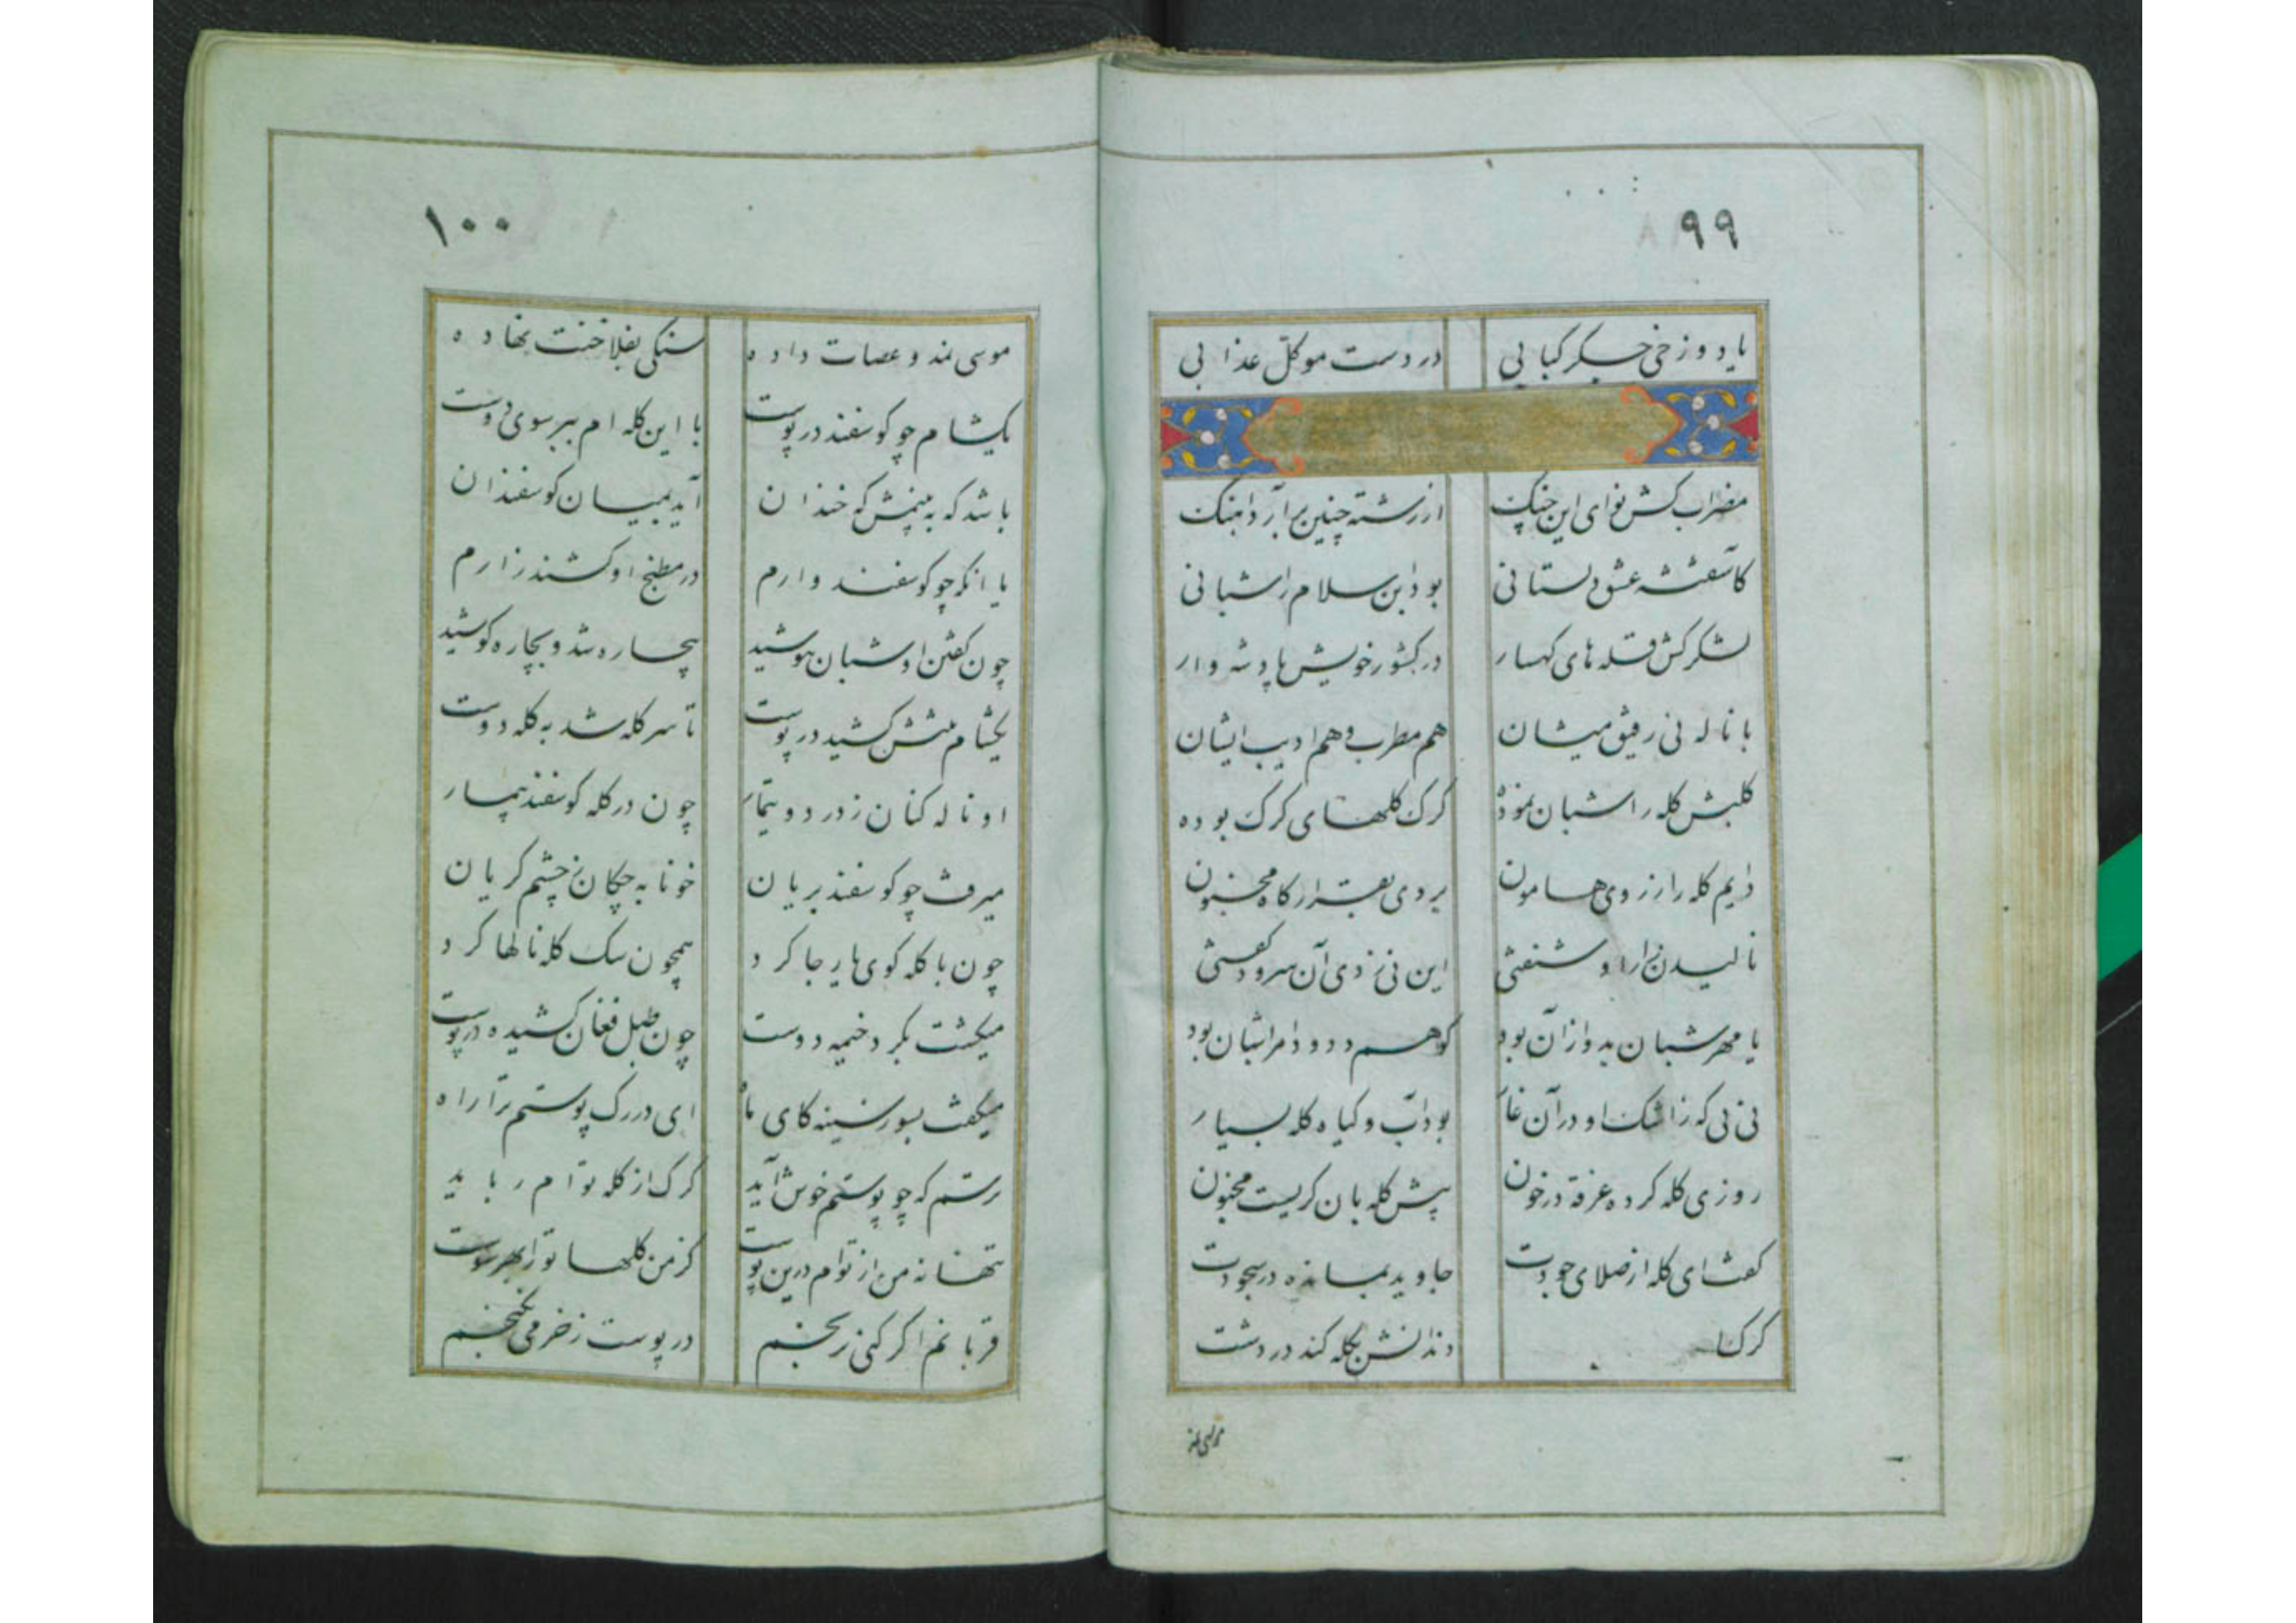 ۹۹
یا دوزخی جگر کبابی در دست موکل عذابی
مضراب کش نوای این چنگ از رشته چنین برآرد آهنگ
کآشفته عشق دلستانی بود ابن سلام را شبانی
لشکر کش قله های کهسار در کشور خویش پادشه وار
با ناله نی رفیق میشان هم مطرب و هم ادیب ایشان
کلبش گله را شبان نموده گرگ گلهای گرگ بوده
دایم گله را ز روی هامون بردی بقرارگاه مجنون
نالیدن زار او شنفتی این نی زدی آن سرود گفتی
یا مهر شبان بدو از آن بود کو هم دد و دام را شبان بود
نی نی که ز اشک او در آن غار بود آب و گیاه گله بسیار
روزی گله کرده غرقه در خون پیش گله بان گریست مجنون
گفت ای گله از صلای جودت جاوید بمانده در سجودت
گرگ دندانش بگله کند در دشت
۱۰۰
موسی نمد و عصات داده سنگی بفلاخنت نهاده
بکشام چو گوسفند در پوست با این گله ام ببر سوی دوست
باشد که به بینمش که خندان آید بمیان گوسفندان
یا آنکه چو گوسفند وارم در مطبخ او کشند زارم
چون گفتن او شبان نیوشید بیچاره شد و بچاره کوشید
بکشام منش کشید در پوست تا سر گله شد به گله دوست
او ناله کنان ز درد و تیمار چون در گله گوسفند بیمار
میرفت چو گوسفند بریان خونابه چکان ز چشم گریان
چون با گله کوی یار جا کرد همچون سگ گله نالها کرد
میگشت بگرد خیمه دوست چون طبل فغان کشیده در پوست
میگفت بسوز سینه کای ماه ای در رگ پوستم ترا راه
رستم که چو پوستم خوش آید گرگ از گله توام رباید
تنها نه من از توام درین پوست کز من گلها ترا بهر سوست
قربانم اگر کنی ز نجم در پوست ز خرمی نگنجم